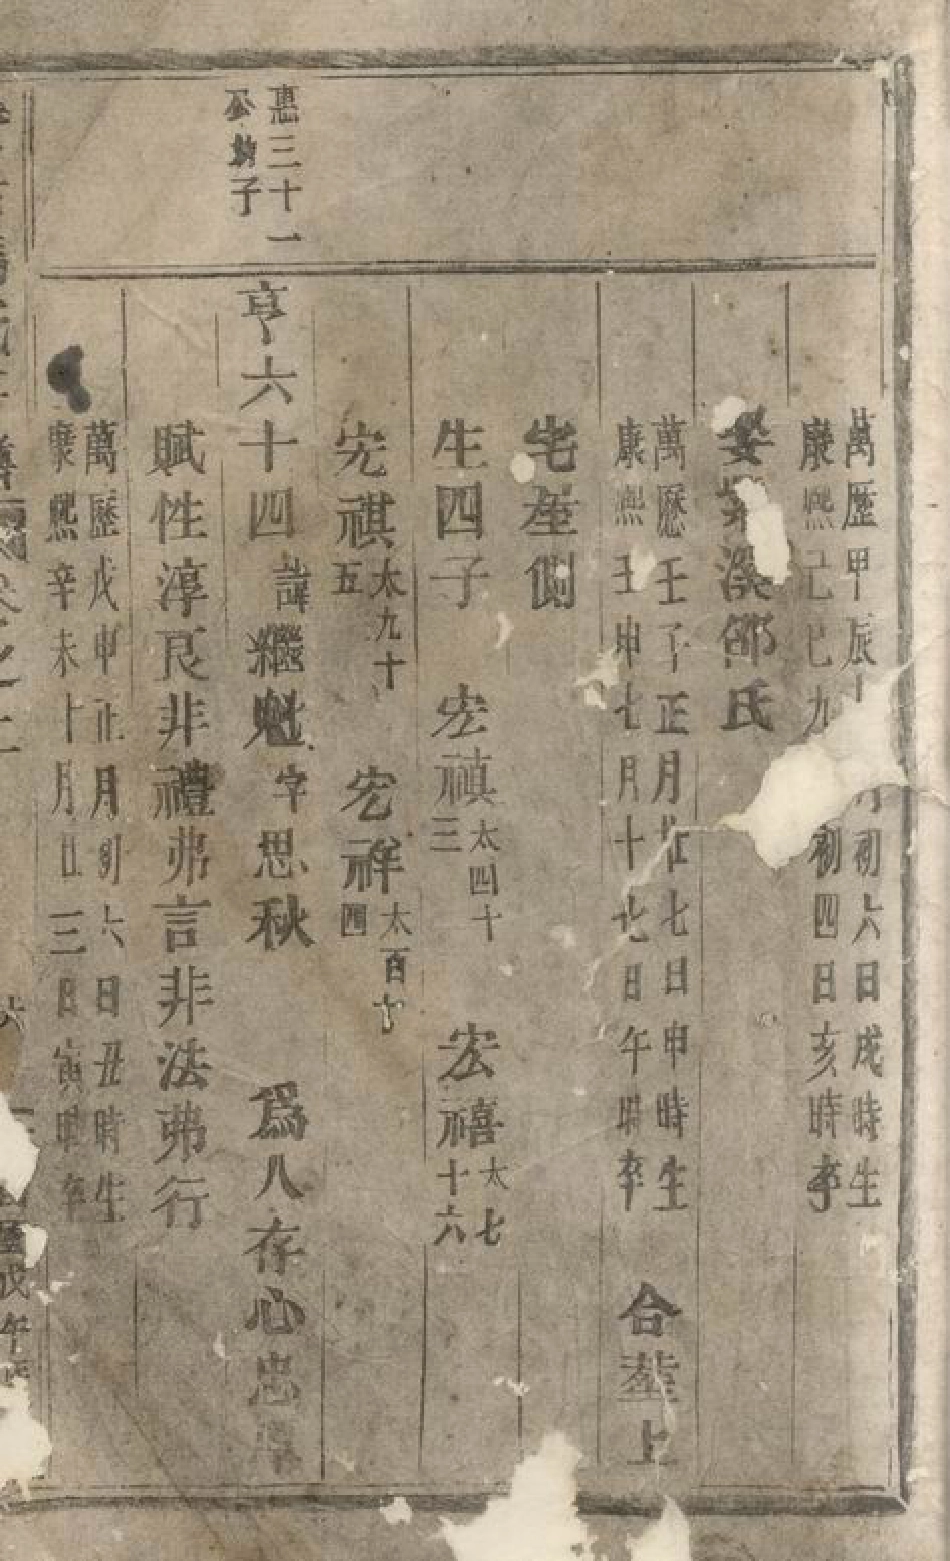 萬歷甲辰十月初六日戌時生
康熙己巳九初四日亥時卒
娶溪邵氏
萬歷壬子正月廿七日申時生
康熙壬申七月十七日午時卒
合塟上
宅塋側
生四子 宏禛太四十三 宏禧太七十六
宏祺太九十五 宏祥太百十四
惠三十一公勲子
亨六十四諱繼魁字思秋 爲人存心忠厚
賦性淳良非禮弗言非法弗行
萬歷戊申正月初六日丑時生
康熙辛未十月廿三日寅時卒